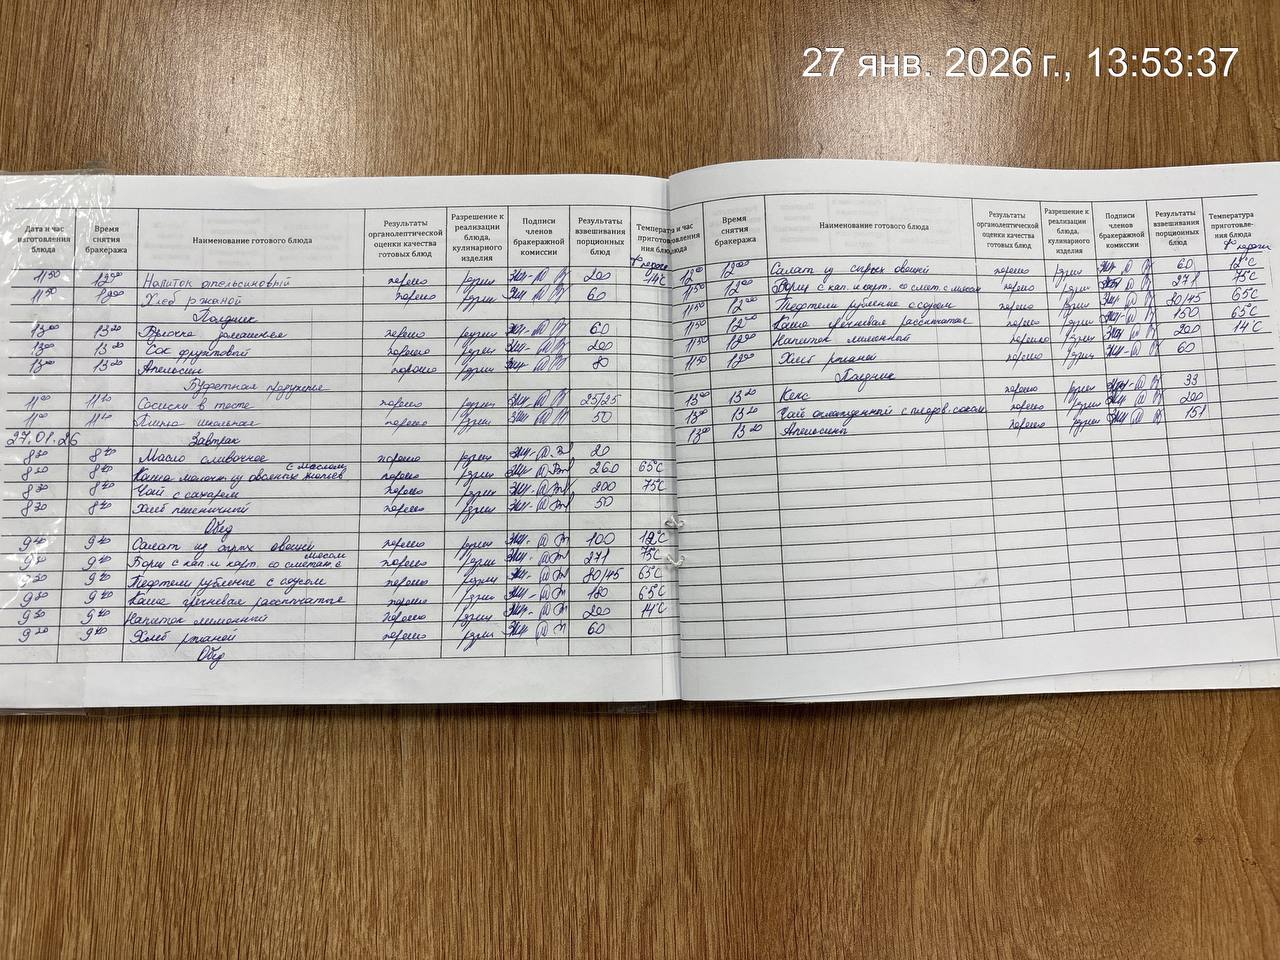 27 янв. 2026 г., 13:53:37
Дата и час изготовления блюда | Время снятия бракеража | Наименование готового блюда | Результаты органолептической оценки качества готовых блюд | Разрешение к реализации блюда, кулинарного изделия | Подписи членов бракеражной комиссии | Результаты взвешивания порционных блюд | Температура приготовления блюда
11 50 12 00 Напиток апельсиновый хорошо 200 14°C
11 50 12 00 Хлеб ржаной хорошо 60
Полдник
13 00 13 20 домашнее хорошо 60
13 00 13 20 Сок фруктовый хорошо 200
13 00 13 20 Апельсин хорошо 80
Буфетная продукция
11 00 11 20 Сосиски в тесте хорошо 25/25
11 00 11 20 школьная хорошо 50
27.01.26 Завтрак
8 30 8 40 Масло сливочное хорошо 20
8 30 8 40 Каша молочн из овсяных хлопьев с маслом хорошо 260 65°C
8 30 8 40 Чай с сахаром хорошо 200 75°C
8 30 8 40 Хлеб пшеничный хорошо 50
Обед
9 20 9 40 Салат из сырых овощей хорошо 100 12°C
9 20 9 40 Борщ с кап. и карт. со сметан. с мясом хорошо 271 75°C
9 20 9 40 Тефтели рубленые с соусом хорошо 80/45 65°C
9 20 9 40 Каша гречневая рассыпчатая хорошо 180 65°C
9 20 9 40 Напиток лимонный хорошо 200 14°C
9 20 9 40 Хлеб ржаной хорошо 60
Обед
Время снятия бракеража | Наименование готового блюда | Результаты органолептической оценки качества готовых блюд | Разрешение к реализации блюда, кулинарного изделия | Подписи членов бракеражной комиссии | Результаты взвешивания порционных блюд | Температура приготовления блюда
12 00 Салат из сырых овощей хорошо 60 12°C
11 50 12 00 Борщ с кап. и карт. со смет. с мясом хорошо 271 75°C
11 50 12 00 Тефтели рубленые с соусом хорошо 80/45 65°C
11 50 12 00 Каша гречневая рассыпчатая хорошо 150 65°C
11 50 12 00 Напиток лимонный хорошо 200 14°C
11 50 12 00 Хлеб ржаной хорошо 60
Полдник
13 00 13 20 Кекс хорошо 33
13 00 13 20 Чай охлажденный с плодов. соком хорошо 200
13 00 13 20 Апельсины хорошо 151